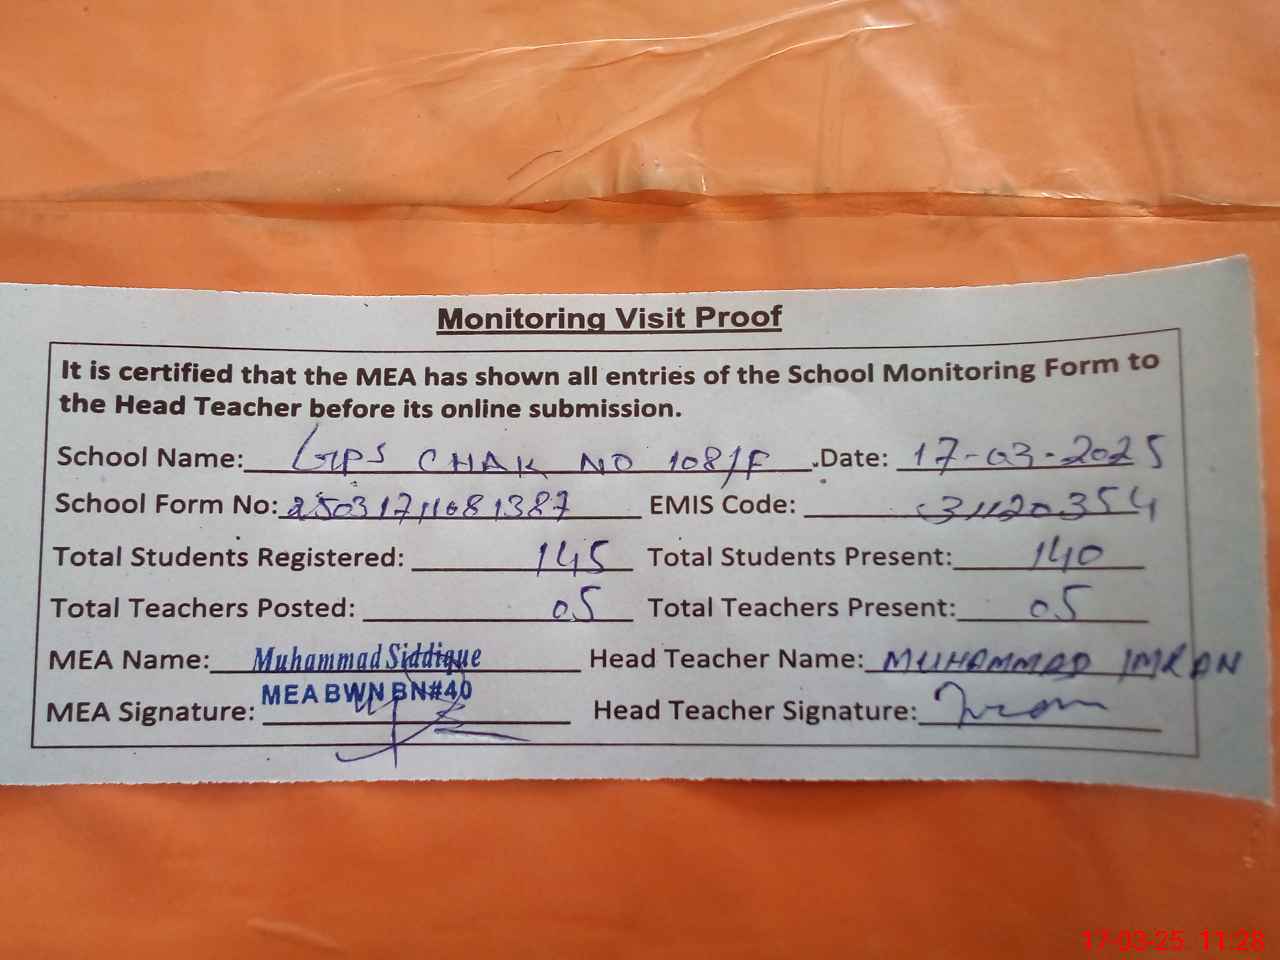 Monitoring Visit Proof
It is certified that the MEA has shown all entries of the School Monitoring Form to
the Head Teacher before its online submission.
School Name: GPS CHAK NO 108/F Date: 17-03-2025
School Form No: 25031711081387 EMIS Code: 31120354
Total Students Registered: 145 Total Students Present: 140
Total Teachers Posted: 05 Total Teachers Present: 05
MEA Name: Muhammad Siddique Head Teacher Name: MUHAMMAD IMRAN
MEA BWN BN#40
MEA Signature: Head Teacher Signature: Imran
17-03-25 11:28